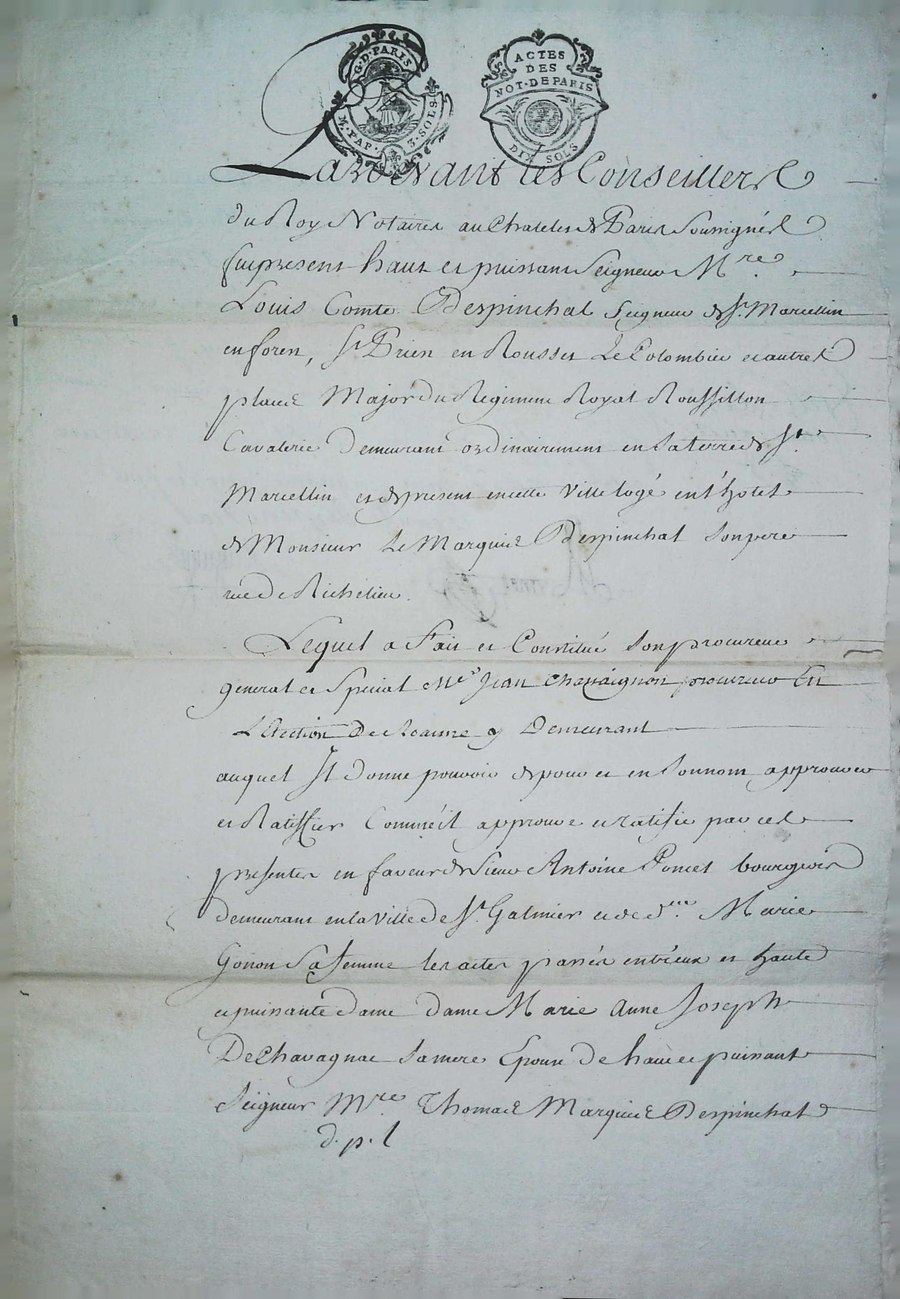 G·D·PARIS
M·PAP· 3·SOLS·
ACTES
DES
NOT·DE PARIS
DIX SOLS
Pardevant les Conseillers
du Roy Notaires au Chatelet de Paris Soussignés
fut present haut et puissant Seigneur Mre
Louis Comte Despinchal Seigneur de St. Marcellin
en foren, St Prien en Rousset Le Colombier et autres
places Major du Regiment Royal Roussillon
Cavalerie Demeurant ordinairement en sa terre de St.
Marcellin et de present en cette Ville logé en l'hotel
de Monsieur Le Marquis Despinchal son pere
rue de Richelieu.
Lequel a Fait et Constitué son procureur
general et Special Me Jean Chassaignon procureur En
L'Election De Roanne y Demeurant
auquel Il donne pouvoir de pour et en son nom approuver
et Ratiffier Comme il approuve et ratifie par ces
presentes en faveur de Sieur Antoine Poncet bourgeois
demeurant en la Ville de St. Galmier et de dlle Marie
Gonon Sa femme les actes passés entr'eux et haute
et puissante dame dame Marie Anne Joseph
De Chavagnac sa mere Epouse de haut et puissant
Seigneur Mre Thomas Marquis Despinchal
d. p. l